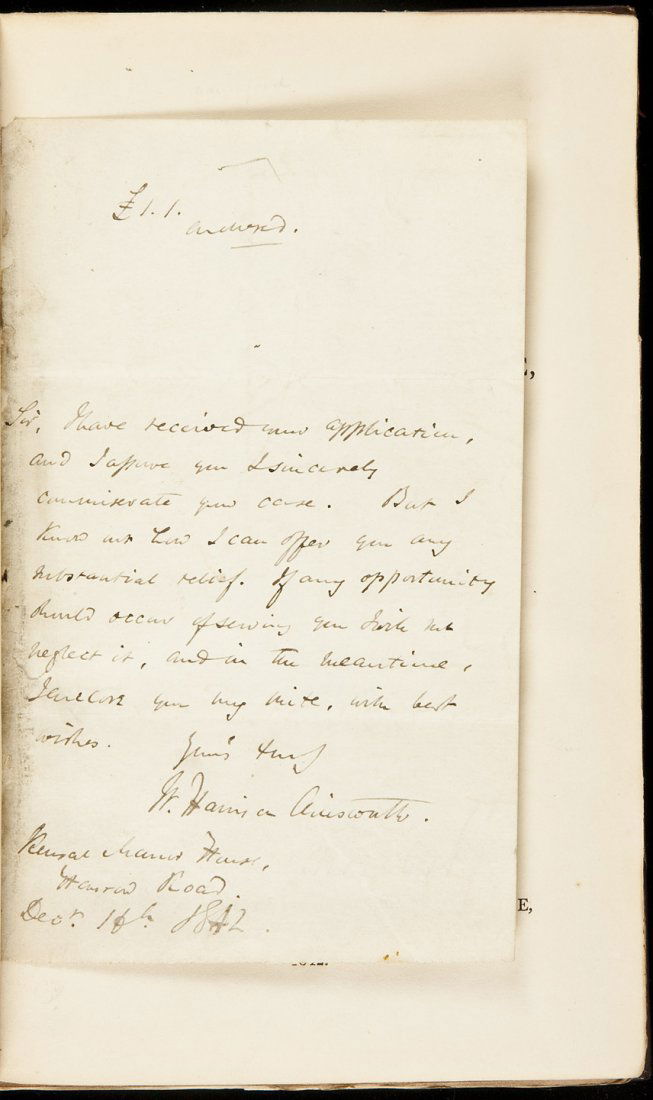 £1.1.
enclosed.
Sir, I have received your application,
and I assure you I sincerely
commiserate your case. But I
know not how I can offer you any
substantial relief. If any opportunity
should occur of serving you I will not
neglect it, and in the meantime,
I enclose you my mite, with best
wishes.
Yours truly
W. Harrison Ainsworth.
Kensal Manor House,
Harrow Road.
Decr. 16th 1842.
E,